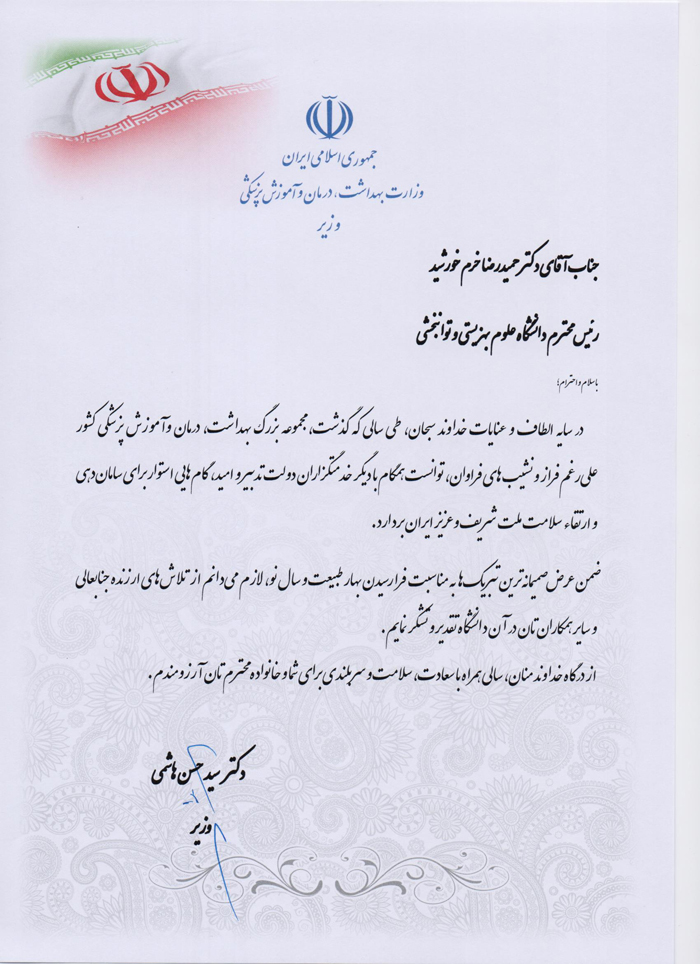 جمهوری اسلامی ایران
وزارت بهداشت، درمان و آموزش پزشکی
وزیر
جناب آقای دکتر حمیدرضا خرم خورشید
رئیس محترم دانشگاه علوم بهزیستی و توانبخشی
باسلام و احترام؛
در سایه الطاف و عنایات خداوند سبحان، طی سالی که گذشت، مجموعه بزرگ بهداشت، درمان و آموزش پزشکی کشور
علی رغم فراز و نشیب های فراوان، توانست همگام با دیگر خدمتگزاران دولت تدبیر و امید، گام هایی استوار برای سامان دهی
و ارتقاء سلامت ملت شریف و عزیز ایران بردارد.
ضمن عرض صمیمانه ترین تبریک ها به مناسبت فرارسیدن بهار طبیعت و سال نو، لازم می دانم از تلاش های ارزنده جنابعالی
و سایر همکاران تان در آن دانشگاه تقدیر و تشکر نمایم.
از درگاه خداوند منان، سالی همراه با سعادت، سلامت و سربلندی برای شما و خانواده محترم تان آرزومندم.
دکتر سید حسن هاشمی
وزیر